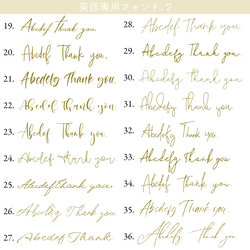 英語専用フォント.2
19. Abcdef Thank you.
20. Abcdef Thank you.
21. Abcdefg Thank you
22. Abcdef Thank you.
23. Abcdef Thank you.
24. Abcdef Thank you
25. Abcdef Thank you.
26. Abcdefg Thank you
27. Abcdef Thank
28. Abcdef Thank you.
29. Abcdefg Thank you.
30. Abcdefg Thank you.
31. Abcdefg Thank you
32. Abcdef Thank you
33. Abcdefg Thank you
34. Abcdef Thank you
35. Abcdefg Thank you.
36. Abcdef Thank you.